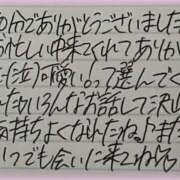 分でありがとうございました
お忙しい中来てくれてありが
た(泣)嬉い って選んでく
たたいろんなお話して沢山
気持ちよくなれたね♪また
いつでも会いに来てね